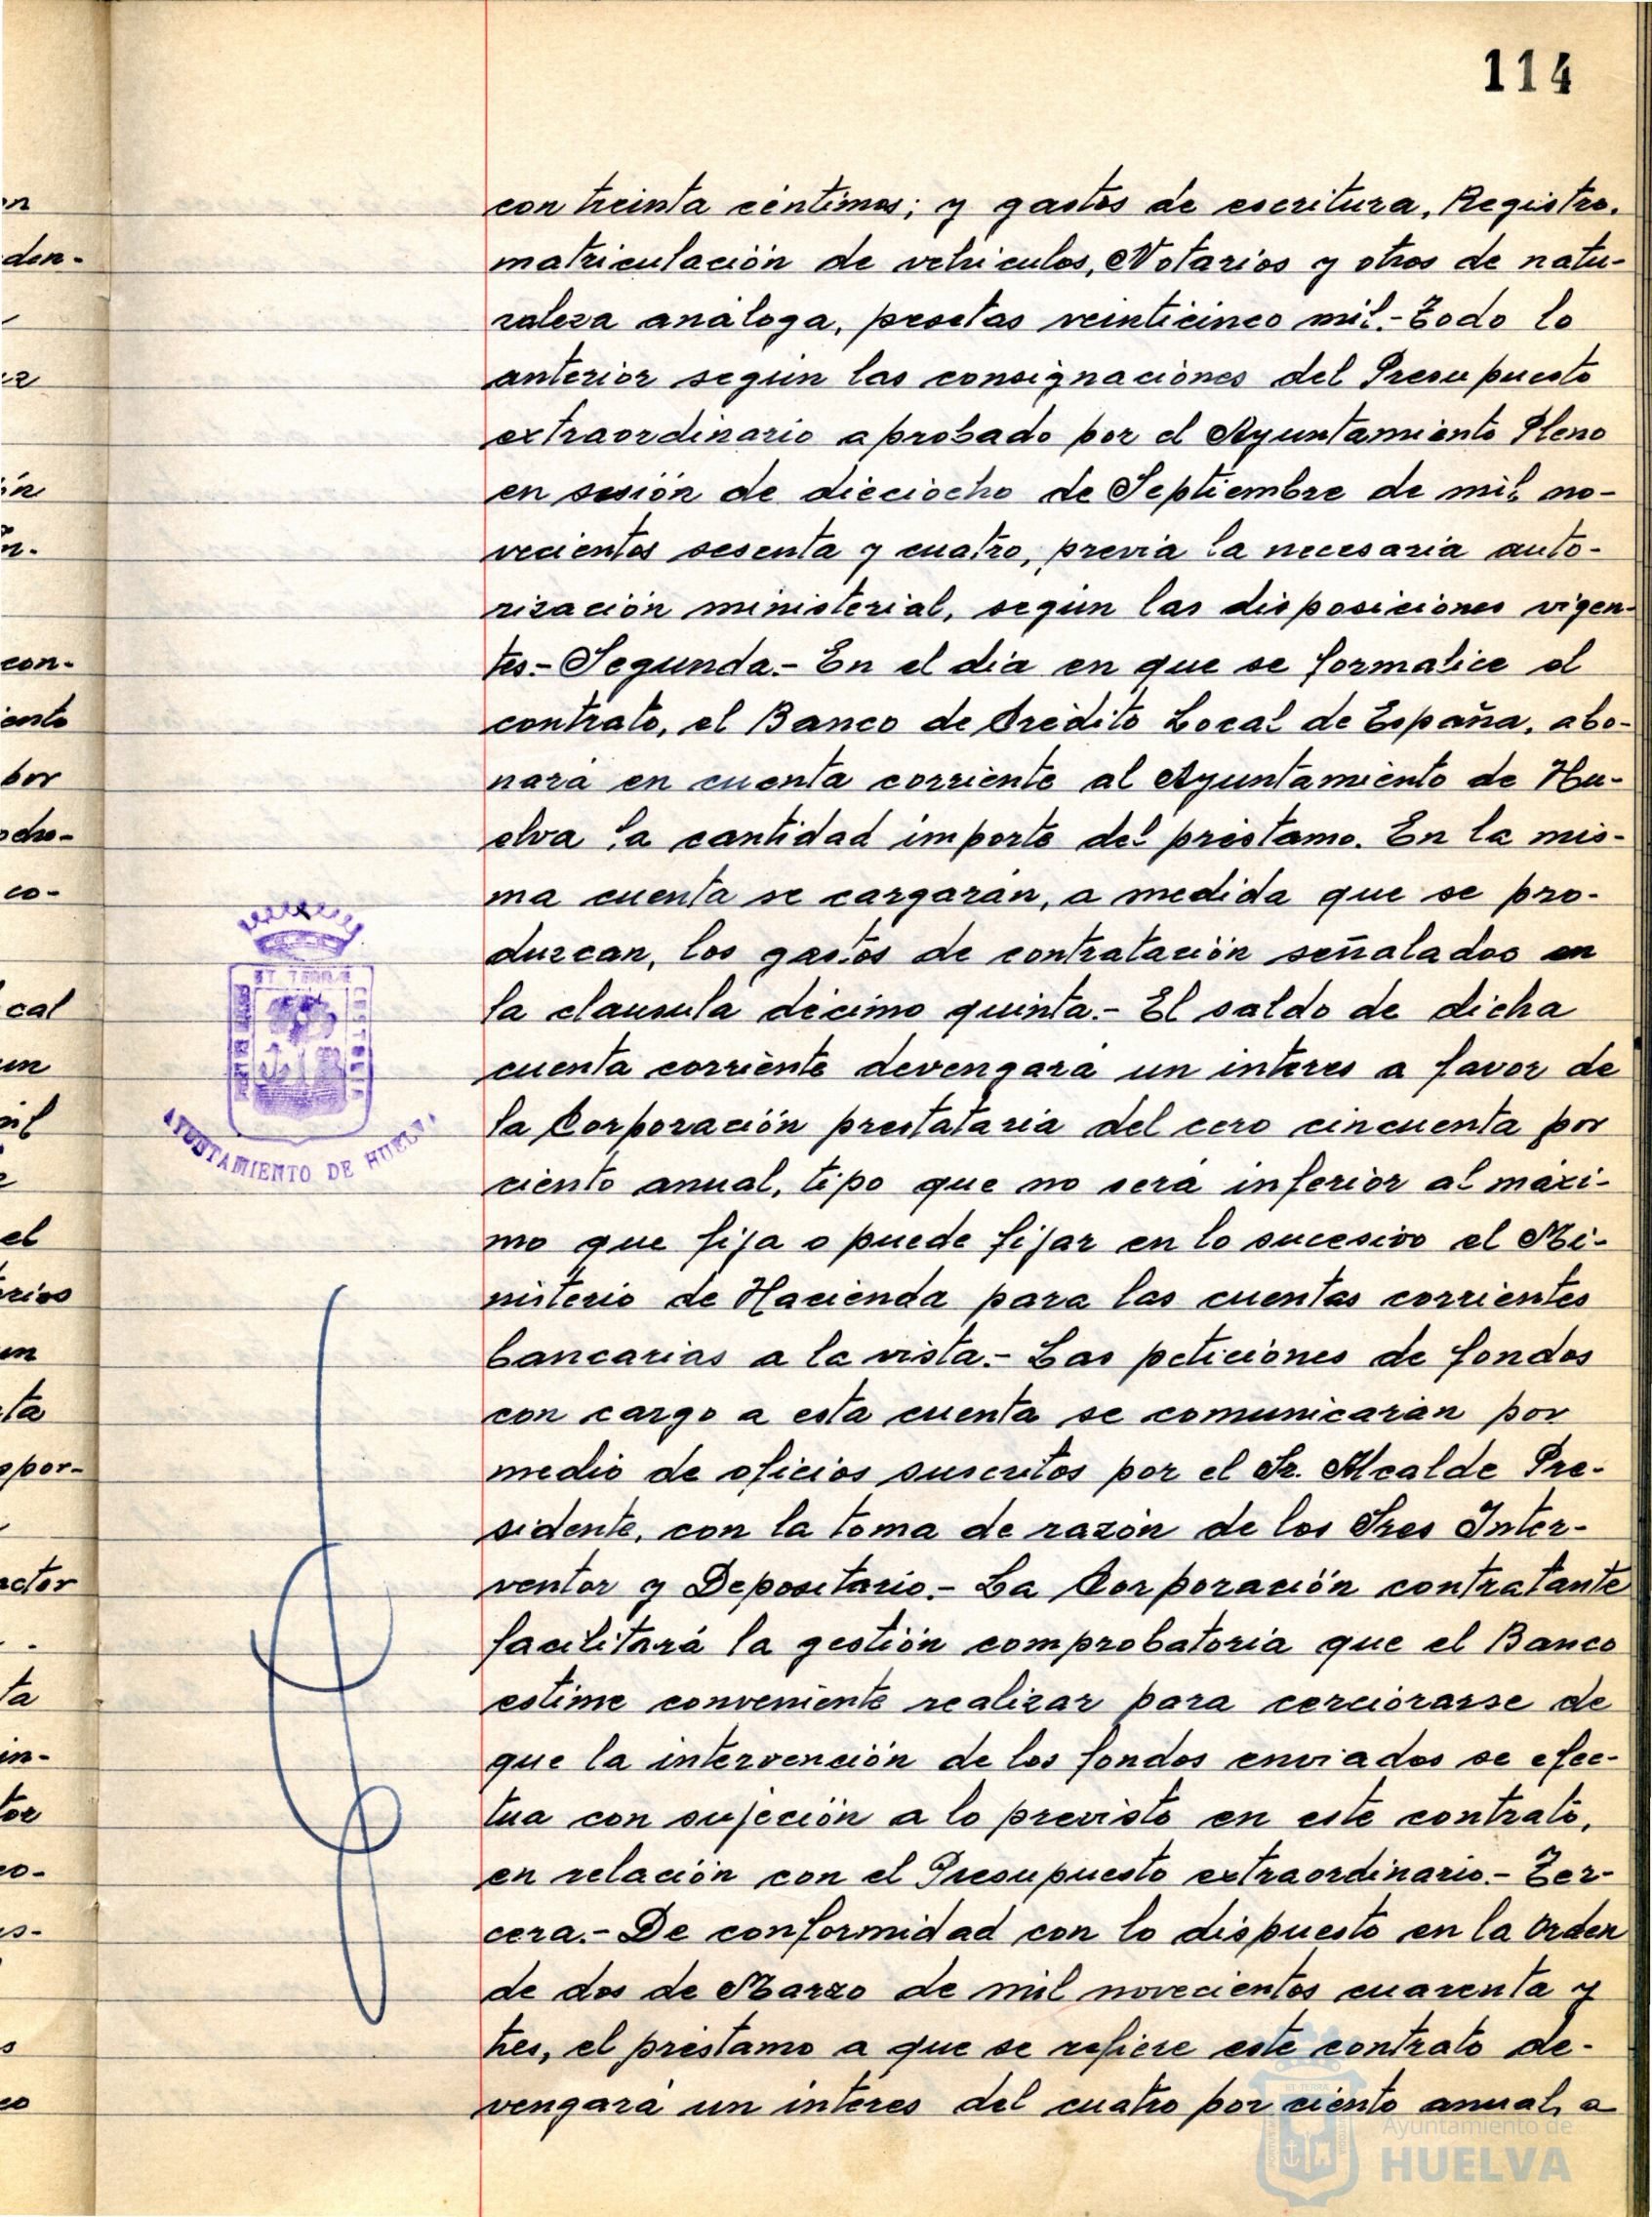 114
con treinta céntimos; y gastos de escritura, Registro,
matriculación de vehiculos, Notarios y otros de natu-
raleza análoga, pesetas veinticinco mil.- Todo lo
anterior según las consignaciones del Presupuesto
extraordinario aprobado por el Ayuntamiento Pleno
en sesión de dieciocho de Septiembre de mil no-
vecientos sesenta y cuatro, previa la necesaria auto-
rización ministerial, según las disposiciones vigen-
tes.- Segunda.- En el día en que se formalice el
contrato, el Banco de Crédito Local de España, abo-
nará en cuenta corriente al Ayuntamiento de Hu-
elva la cantidad importe del préstamo. En la mis-
ma cuenta se cargarán, a medida que se pro-
duzcan, los gastos de contratación señalados en
la clausula décimo quinta.- El saldo de dicha
cuenta corriente devengará un interes a favor de
la Corporación prestataria del cero cincuenta por
ciento anual, tipo que no será inferior al máxi-
mo que fija o puede fijar en lo sucesivo el Mi-
nisterio de Hacienda para las cuentas corrientes
bancarias a la vista.- Las peticiones de fondos
con cargo a esta cuenta se comunicarán por
medio de oficios suscritos por el Sr. Alcalde Pre-
sidente, con la toma de razón de los Sres Inter-
ventor y Depositario.- La Corporación contratante
facilitará la gestión comprobatoria que el Banco
estime conveniente realizar para cerciorarse de
que la intervención de los fondos enviados se efec-
tua con sujeción a lo previsto en este contrato,
en relación con el Presupuesto extraordinario.- Ter-
cera.- De conformidad con lo dispuesto en la Orden
de dos de Marzo de mil novecientos cuarenta y
tres, el préstamo a que se refiere este contrato de-
vengará un interes del cuatro por ciento anual, a
AYUNTAMIENTO DE HUELVA
Ayuntamiento de
HUELVA